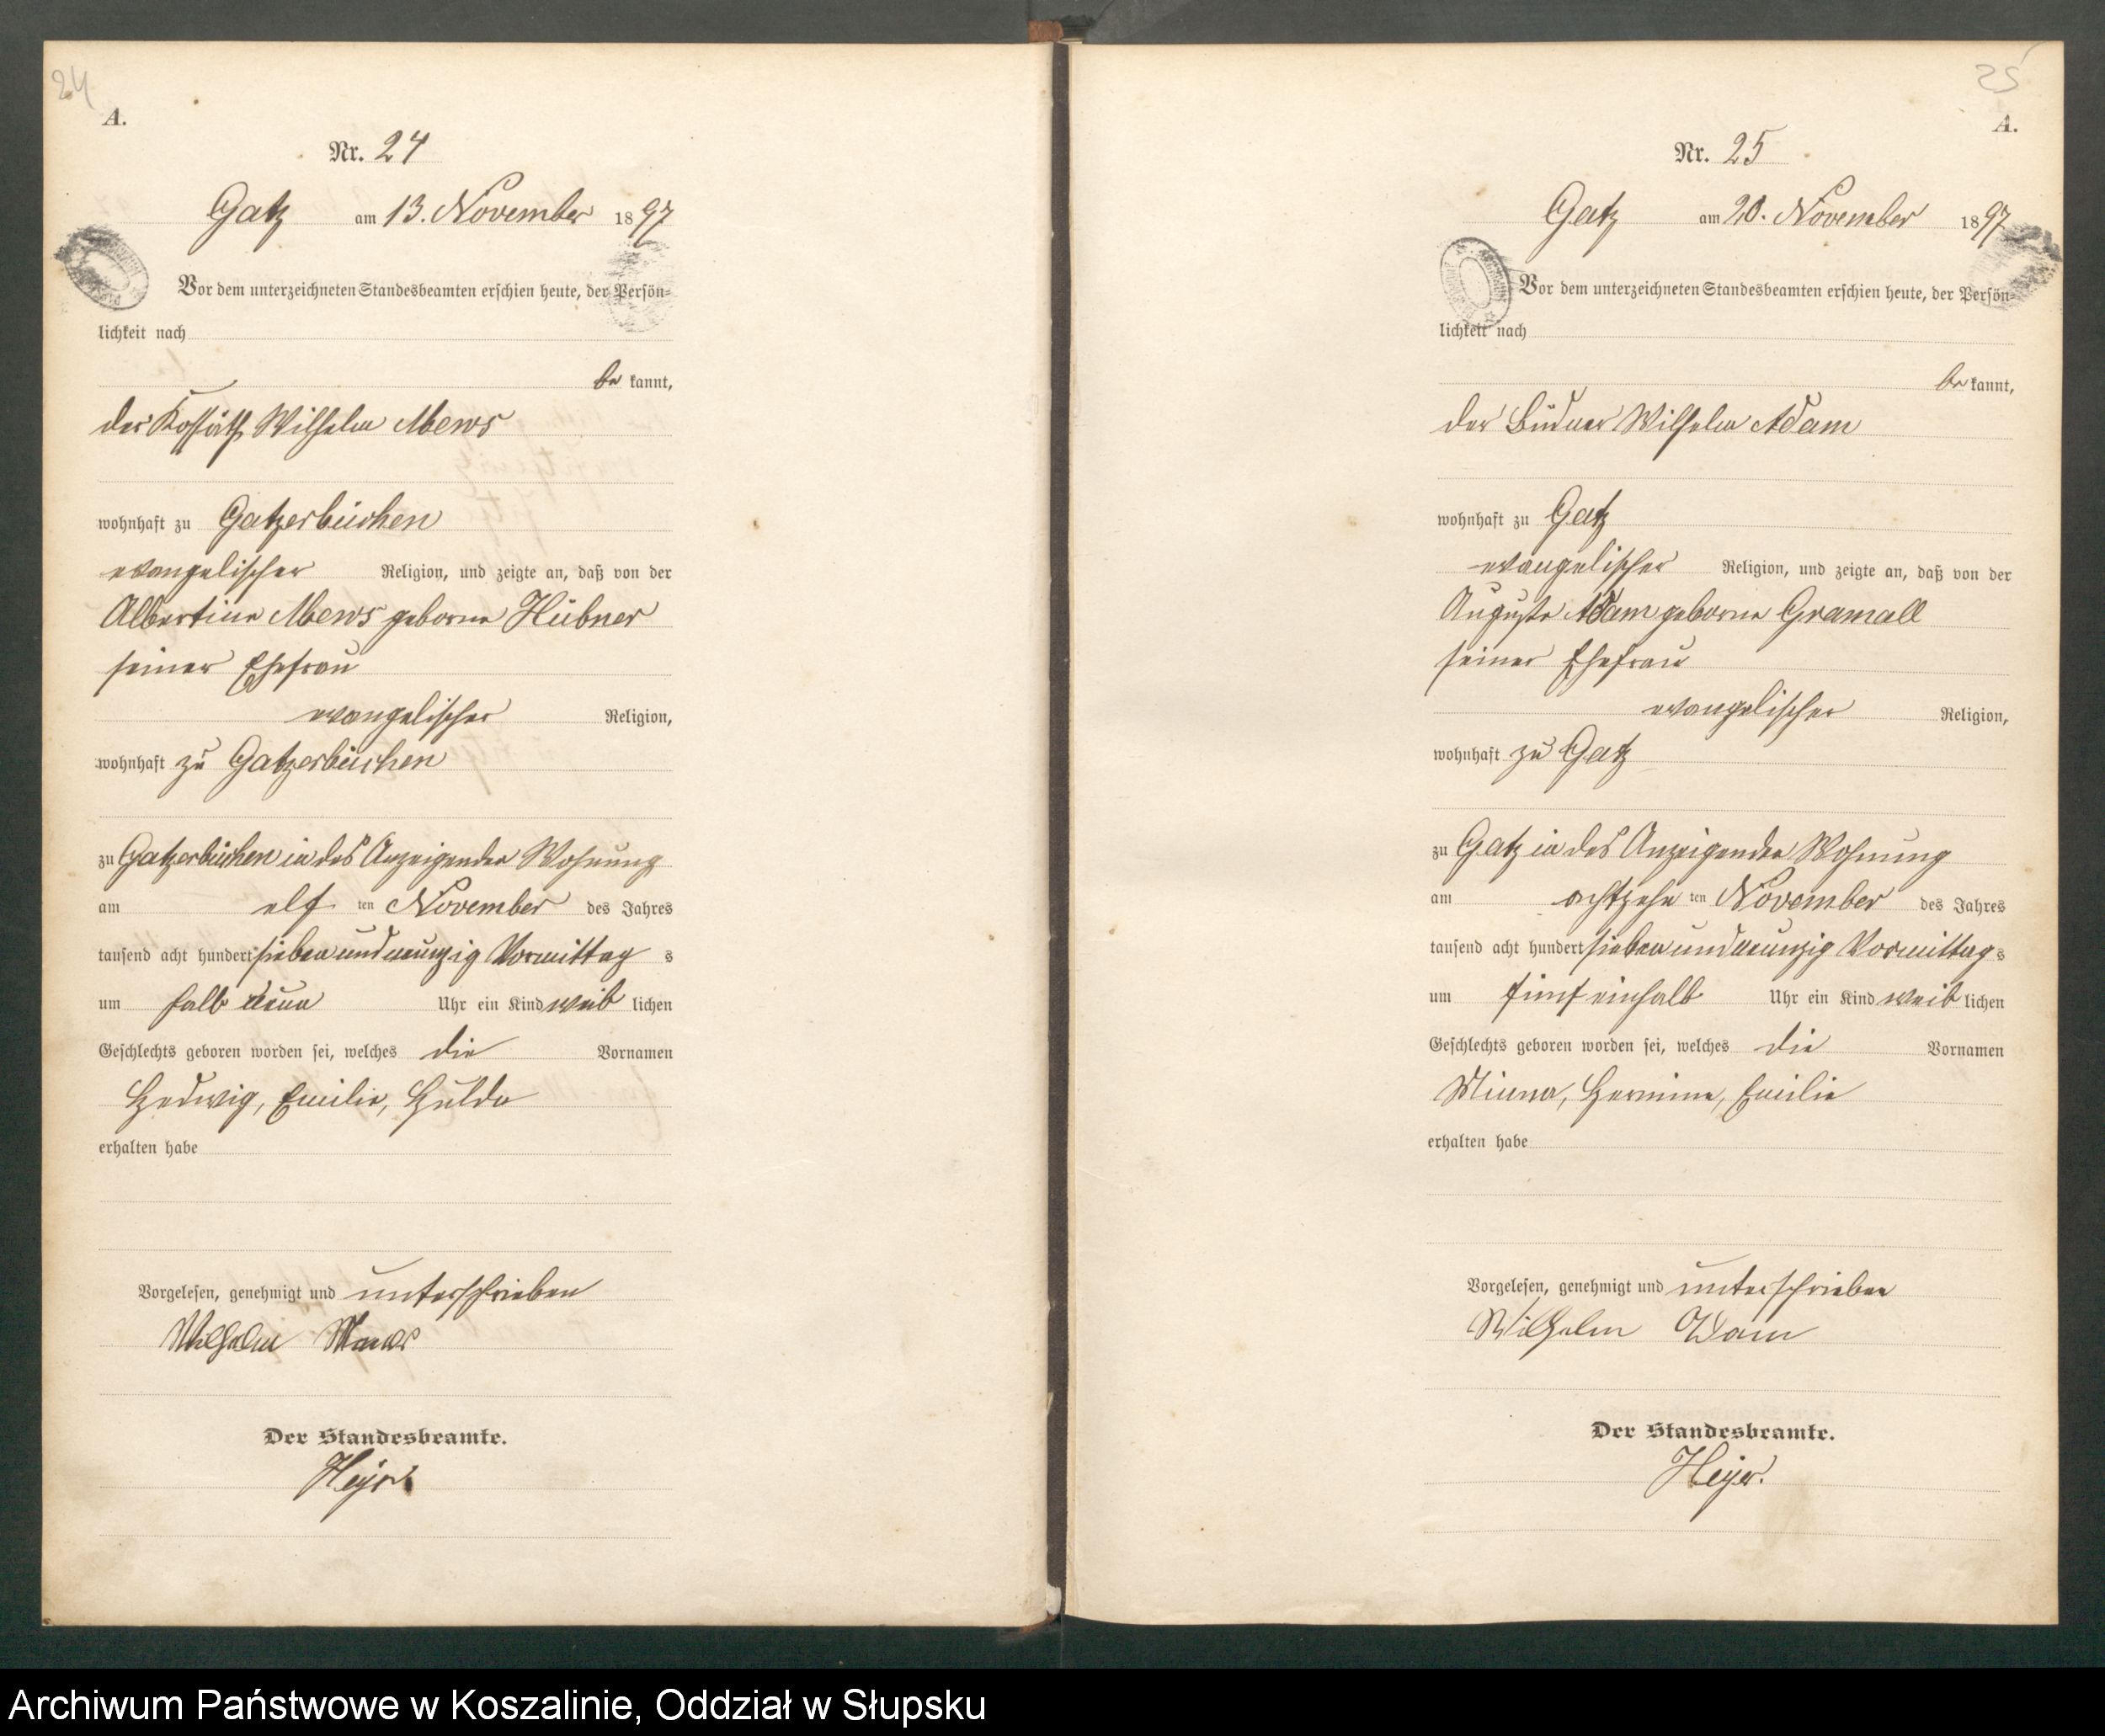 24
A.
Nr. 24
Gatz am 13. November 1897
Vor dem unterzeichneten Standesbeamten erschien heute, der Persön-
lichkeit nach
be kannt,
der Kossäth Wilhelm Mews
wohnhaft zu Gatzerbüchen
evangelischer Religion, und zeigte an, daß von der
Albertine Mews geborne Hübner
seiner Ehefrau
evangelischer Religion,
wohnhaft zu Gatzerbüchen
zu Gatzerbüchen in des Anzeigenden Wohnung
am elf ten November des Jahres
tausend acht hundert sieben und neunzig Vormittag s
um halb neun Uhr ein Kind weib lichen
Geschlechts geboren worden sei, welches die Vornamen
Hedwig, Emilie, Hulda
erhalten habe
Vorgelesen, genehmigt und unterschrieben
Wilhelm Mews
Der Standesbeamte.
Heyer
25
A.
Nr. 25
Gatz am 20. November 1897
Vor dem unterzeichneten Standesbeamten erschien heute, der Persön-
lichkeit nach
be kannt,
der Büdner Wilhelm Adam
wohnhaft zu Gatz
evangelischer Religion, und zeigte an, daß von der
Auguste Adam geborne Gramall
seiner Ehefrau
evangelischer Religion,
wohnhaft zu Gatz
zu Gatz in des Anzeigenden Wohnung
am achtzehn ten November des Jahres
tausend acht hundert sieben und neunzig Vormittag s
um fünf einhalb Uhr ein Kind weib lichen
Geschlechts geboren worden sei, welches die Vornamen
Minna, Hermine, Emilie
erhalten habe
Vorgelesen, genehmigt und unterschrieben
Wilhelm Adam
Der Standesbeamte.
Heyer.
Archiwum Państwowe w Koszalinie, Oddział w Słupsku